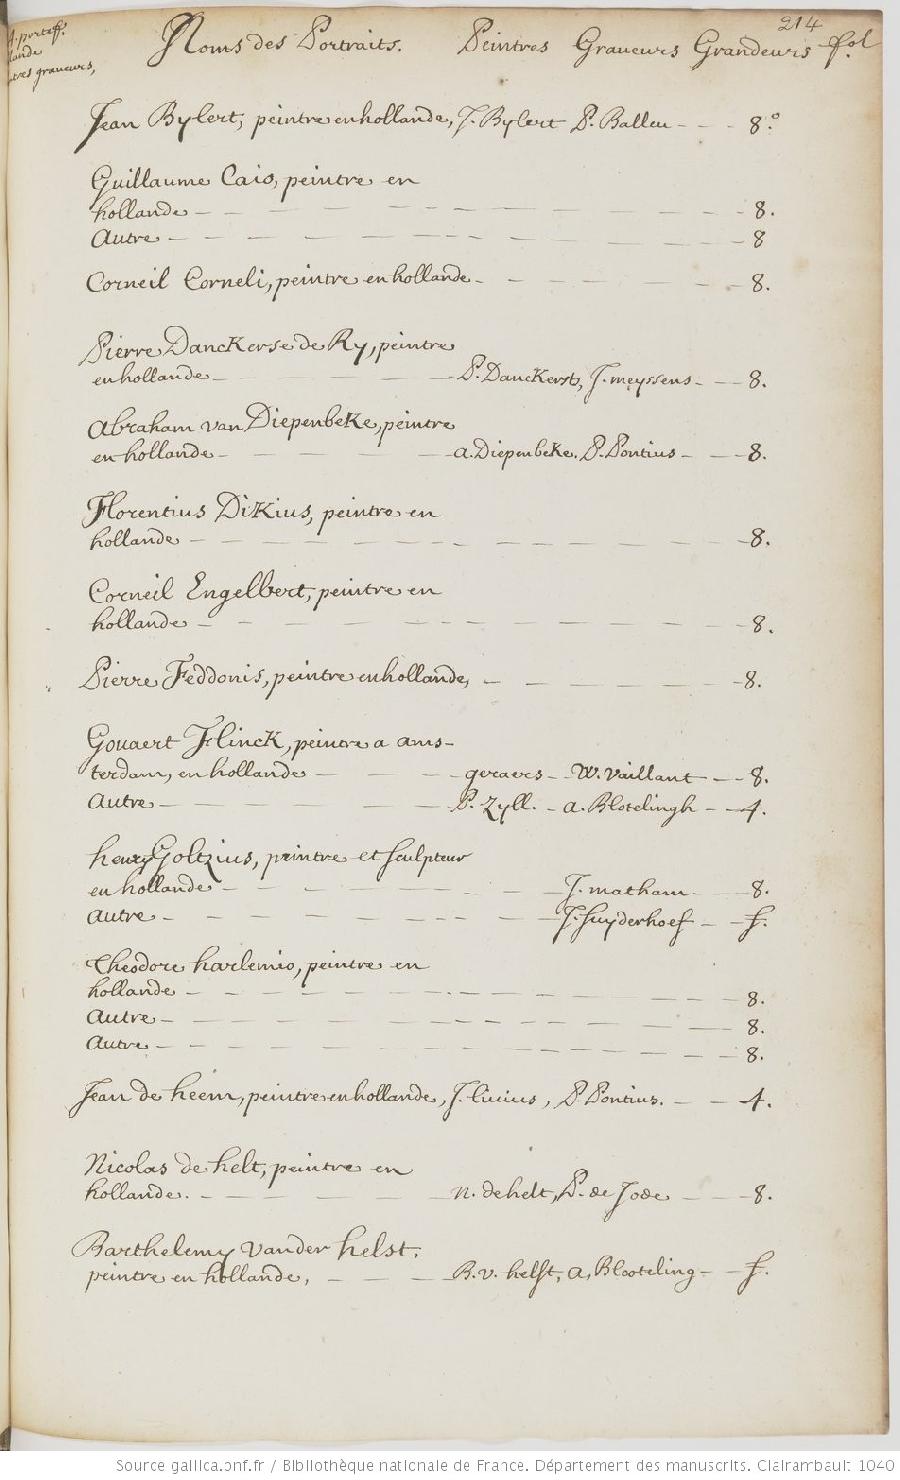 214
4. portef.
lande
tres graveurs,
Noms des Portraits. Peintres Graveurs Grandeurs fol.
Jean Bylert, peintre en hollande, J. Bylert P. Balleu - - - 8.°
Guillaume Caio, peintre en
hollande - - - - - - - 8.
Autre - - - - - - - 8
Corneil Corneli, peintre en hollande - - - - - 8.
Pierre Danckerse de Ry, peintre
en hollande - - - P. Danckerts, J. meyssens - - 8.
Abraham van Diepenbeke, peintre
en hollande - - - - a. Diepenbeke. P. Pontius - - 8.
Florentius Dikius, peintre en
hollande - - - - - - - 8.
Corneil Engelbert, peintre en
hollande - - - - - - - 8.
Pierre Feddonis, peintre en hollande, - - - - - 8.
Gouaert Flinck, peintre a ams-
terdam, en hollande - - - geraers - W. Vaillant - - 8.
Autre - - - - - P. Zyll. - a. Blotelingh - - 4.
henry Goltzius, peintre et sculpteur
en hollande - - - - - - J. matham - 8.
autre - - - - - - - J. Suyderhoef - - f.
Theodore harlemio, peintre en
hollande - - - - - - - 8.
Autre - - - - - - - 8.
Autre - - - - - - - 8.
Jean de heem, peintre en hollande, J. livius, P. Pontius. - - 4.
Nicolas de helt, peintre en
hollande. - - - - n. de helt, P. de Jode - - 8.
Barthelemy vander helst.
peintre en hollande, - - - B. v. helst, a. Blooteling - - f.
Source gallica.bnf.fr / Bibliothèque nationale de France. Département des manuscrits. Clairambault 1040